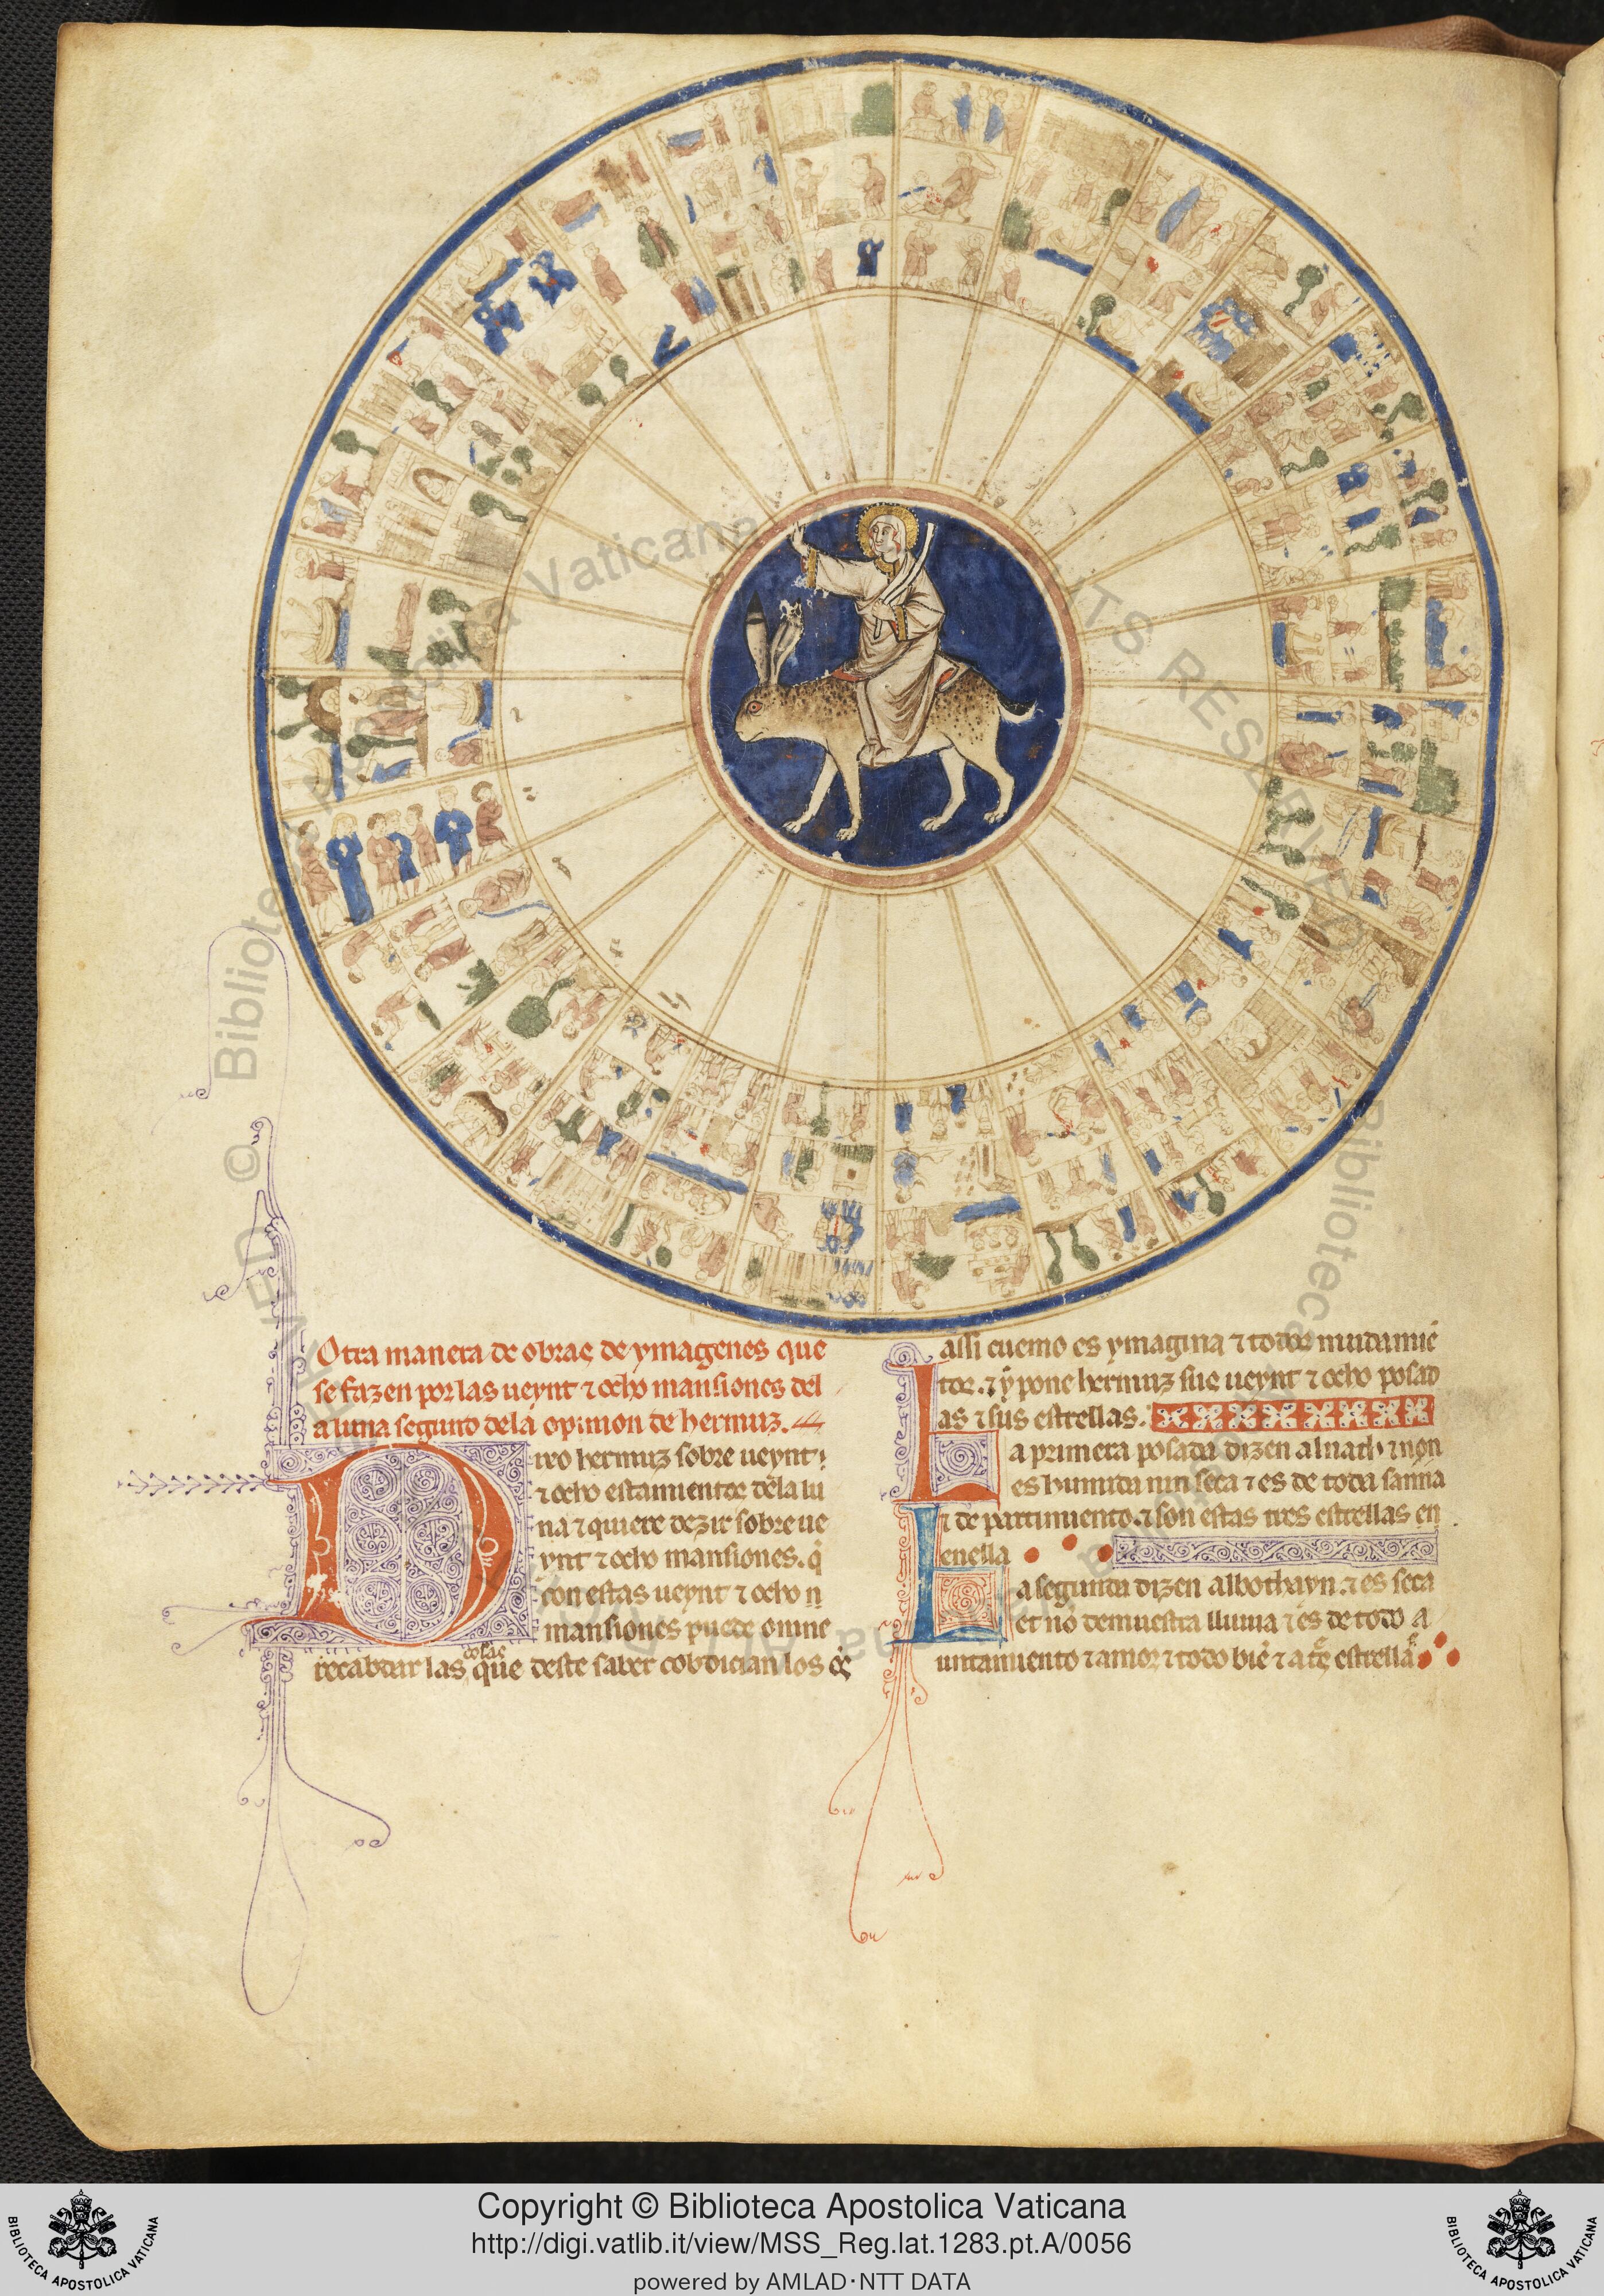 Otra manera de obras de ymagenes que
se fazen por las ueynt ⁊ ocho mansiones del
a luna segund dela opinion de hermuz.
Dixo hermuz sobre ueynt
⁊ ocho estamientos dela lu
na ⁊ quiere dezir sobre ue
ynt ⁊ ocho mansiones. q̇
con estas ueynt ⁊ ocho
mansiones puede omne
recabdar las cosas que deste saber cobdician los
assi cuemo es ymagina ⁊ todos mudamiē
tos. ⁊ y pone hermuz sus ueynt ⁊ ocho posad
as ⁊ sus estrellas.
La primera posada dizen alnath ⁊ non
es humida nin seca ⁊ es de toda sanna
⁊ de partimiento. ⁊ son estas tres estrellas en
enella
La segunda dizen albothayn. ⁊ es seca
et no demuestra lluuia ⁊ es de todo a
untamiento ⁊ amor ⁊ todo biē ⁊ estrellas
© Biblioteca Apostolica Vaticana
ALL RIGHTS RESERVED
Copyright © Biblioteca Apostolica Vaticana
http://digi.vatlib.it/view/MSS_Reg.lat.1283.pt.A/0056
powered by AMLAD·NTT DATA
BIBLIOTECA APOSTOLICA VATICANA
BIBLIOTECA APOSTOLICA VATICANA